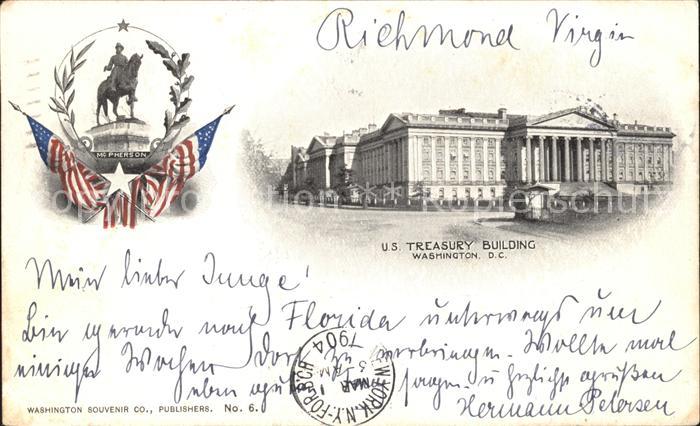 Richmond Virgin
McPHERSON
U.S. TREASURY BUILDING
WASHINGTON, D.C.
Mein lieber Junge!
Bin gerade nach Florida unterwegs um
einige Wochen dort zu verbringen. Wollte mal
eben sagen u herzlichst grüßen
Hermann Petersen
NEW YORK, N.Y.
MAR
1904
WASHINGTON SOUVENIR CO., PUBLISHERS. No. 6.